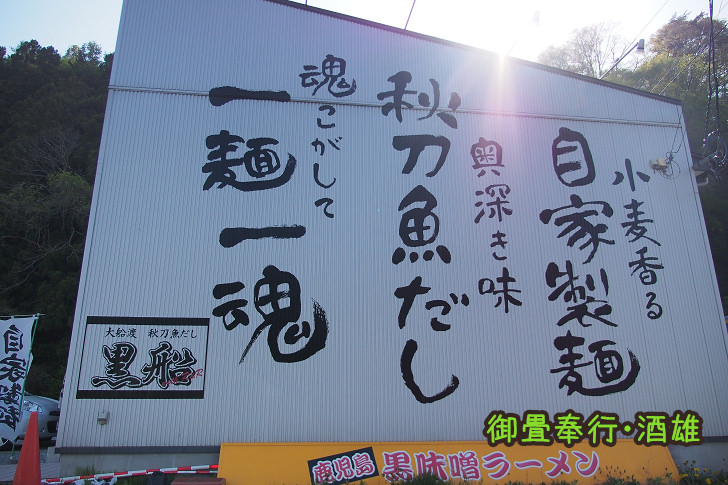 小麦香る
自家製麺
奥深き味
秋刀魚だし
魂こがして
一麺一魂
大船渡 秋刀魚だし
黒船
自家製麺
御畳奉行・酒雄
鹿児島 黒味噌ラーメン